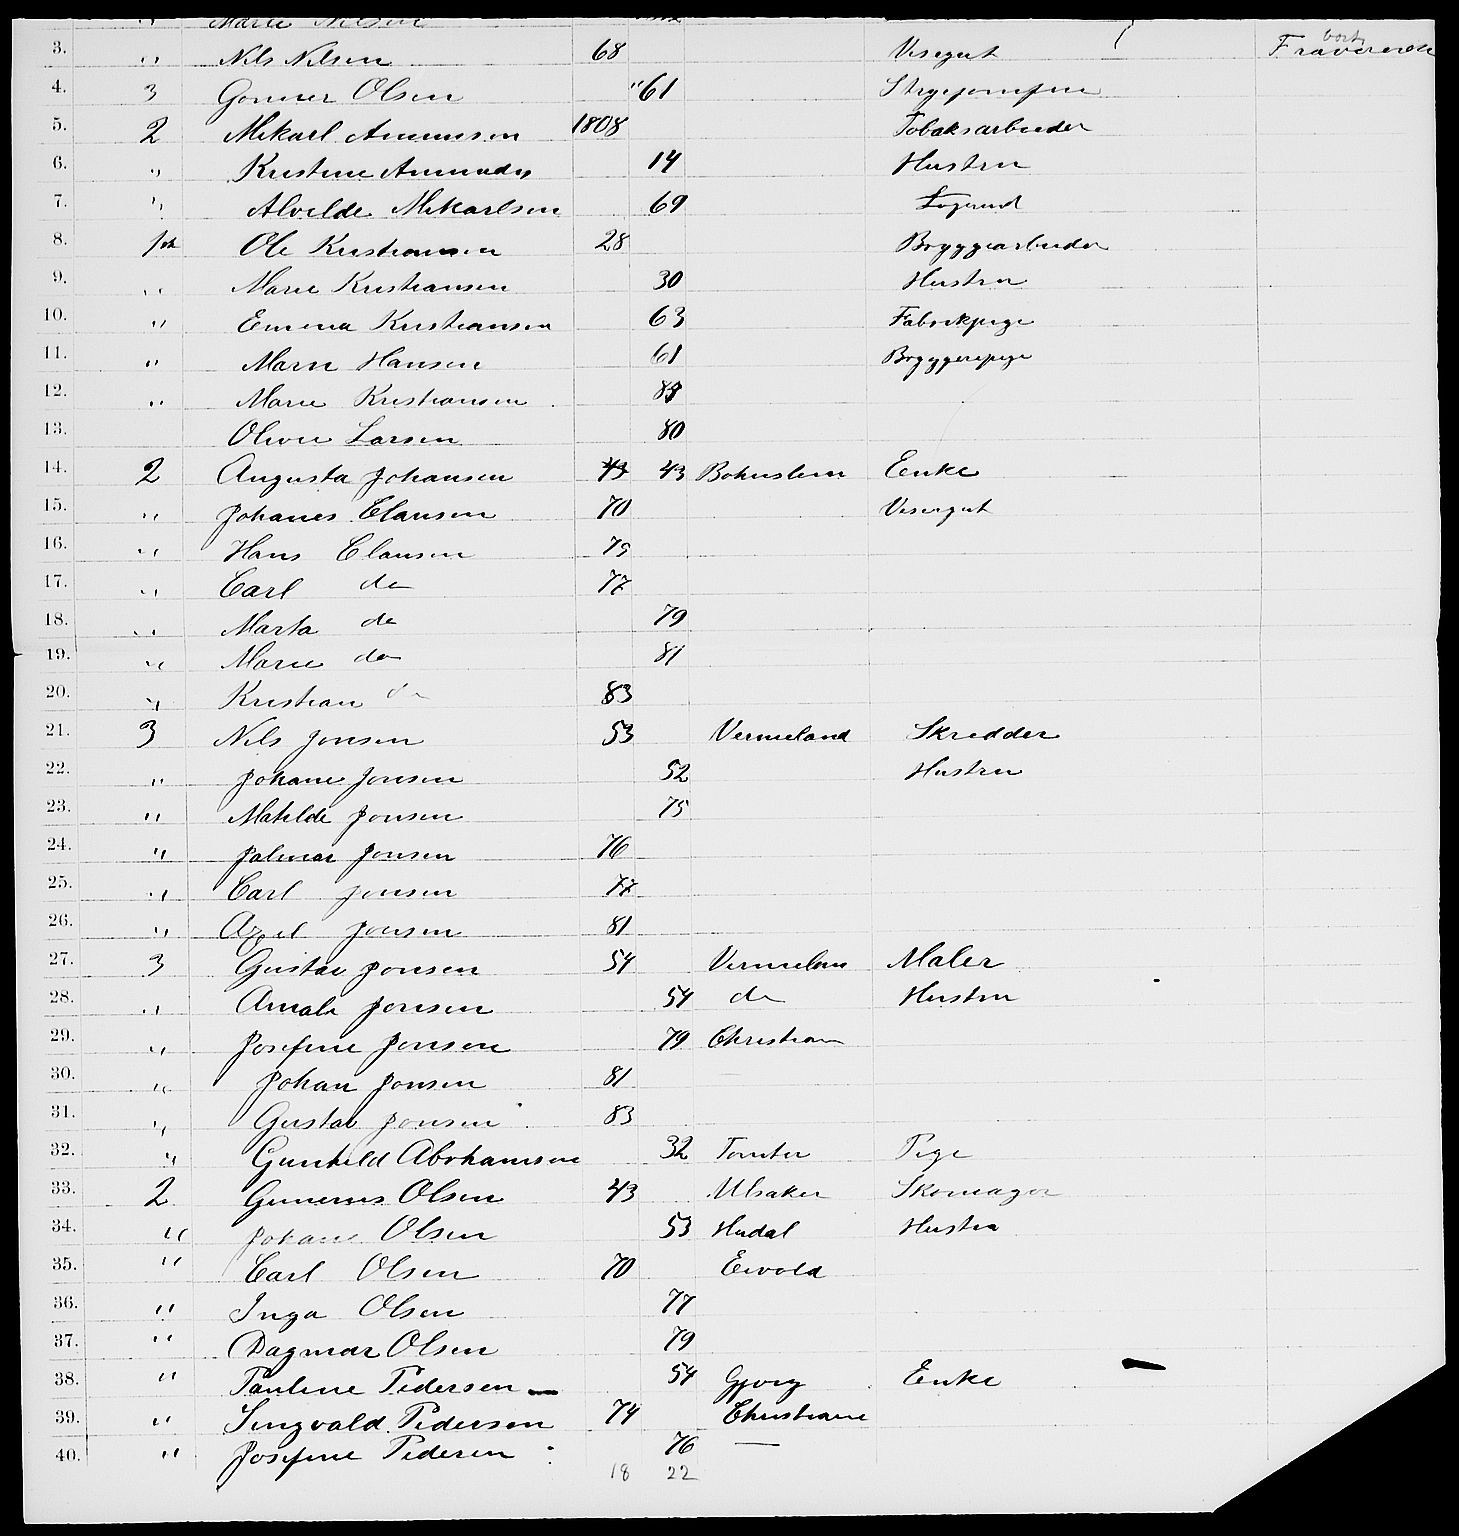 Marie Nilsen
3. " Nils Nilsen 68 Visergut Fraværende bort
4. 3 Olsen "61
5. 2 Mikael Amunsen 1808 Tobaksarbeider
6. " Kristine Amunds 14 Hustru
7. " Alvilde Mikarlsen 69 Logerend
8. Ole Kristiansen 28 Bryggearbeider
9. " Marie Kristiansen 30 Hustru
10. " Emma Kristiansen 63 Fabrikpige
11. " Marie Hansen 61 Bryggeripige
12. " Marie Kristiansen
13. Olivie Larsen 80
14. 2 Augusta Johansen 43 43 Bohuslen Enke
15. " Johanes Clausen 70 Visergut
16. " Hans Clausen 75
17. " Carl do 77
18. " Marta do 79
19. " Marie do 81
20. " Kristian do 83
21. 3 Nils Jonsen 53 Vermeland Skredder
22. " Johane Jonsen 52 Hustru
23. " Matilde Jonsen 75
24. " Jalmar Jonsen 76
25. " Carl Jonsen 77
26. " Axel Jonsen 81
27. 3 Gustav Jonsen 54 Vermelan Maler
28. " Amala Jonsen 54 do Hustru
29. " Josefine Jonsen 79 Christian
30. " Johan Jonsen 81 —
31. " Gustav Jonsen 83
32. " Gunhild Abrhamsen 32 Tomter Pige
33. 2 Gunerus Olsen 43 Ulsaker Skomager
34. " Johane Olsen 53 Hurdal Hustru
35. " Carl Olsen 70 Eivold
36. " Inga Olsen 77
37. " Dagmar Olsen 79
38. " Pauline Pedersen — 54 Gjøvig Enke
39. " Singvald Pedersen 74 Christiane
40. " Josefine Pedersen 76 —
18 22